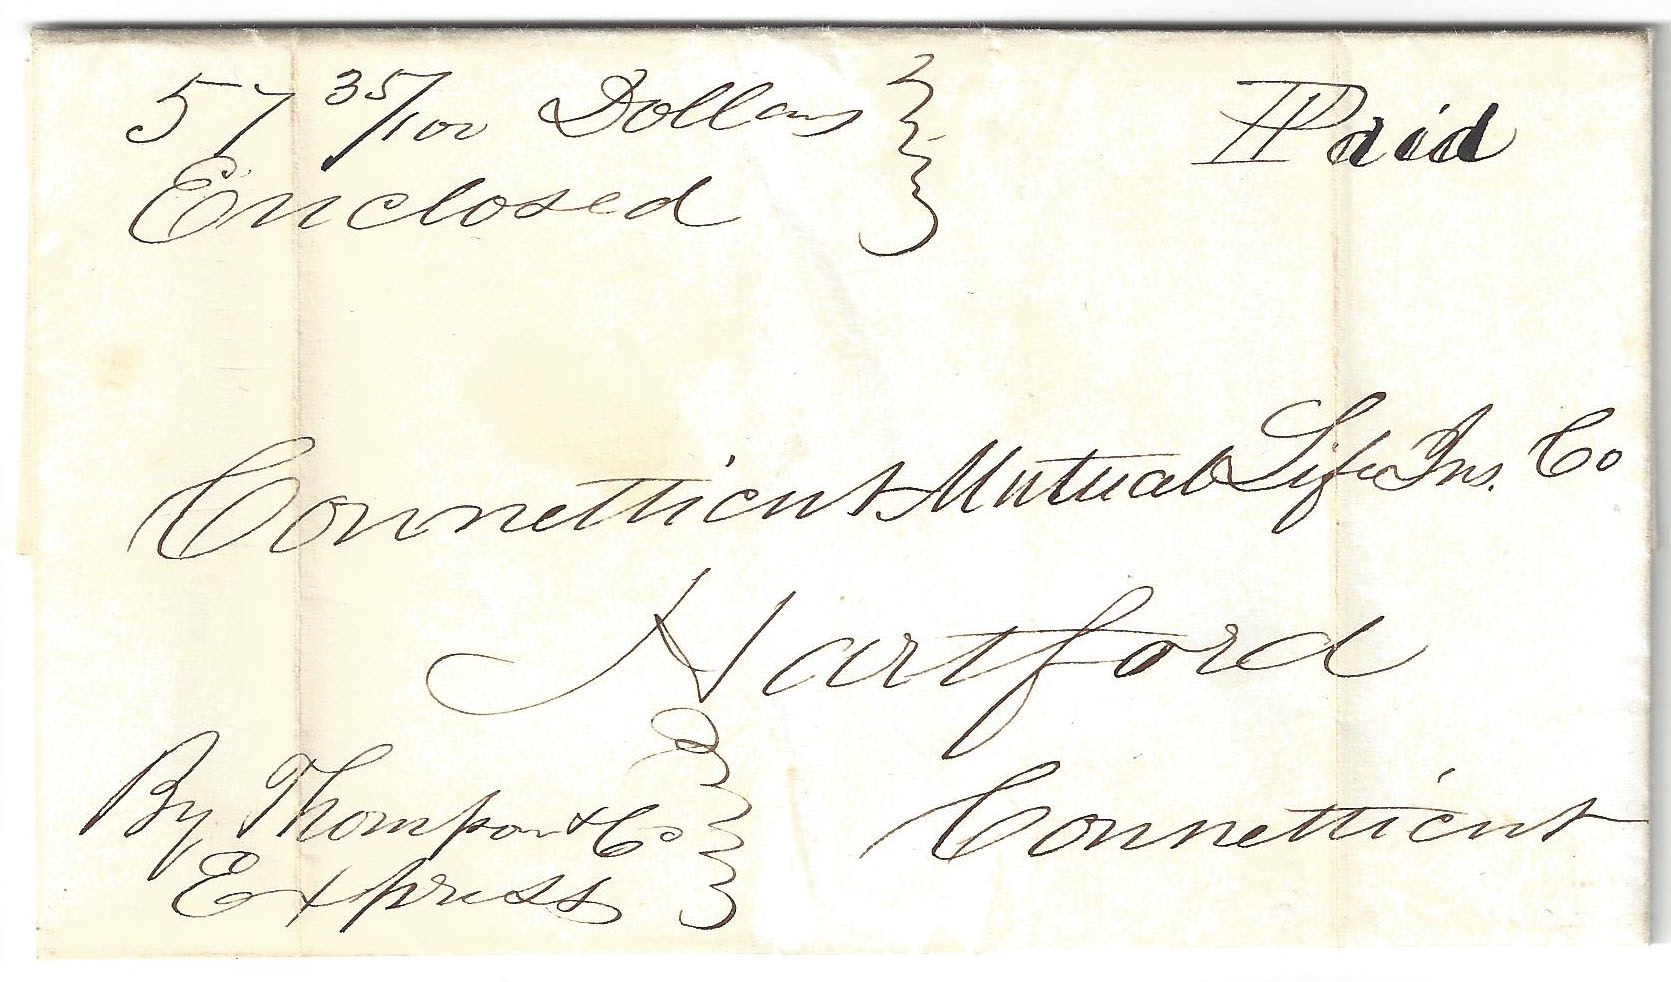 57 35/100 Dollars
Enclosed
Paid
Connetticut Mutual Life Ins. Co
Hartford
Connetticut
By Thompson & Co
Express